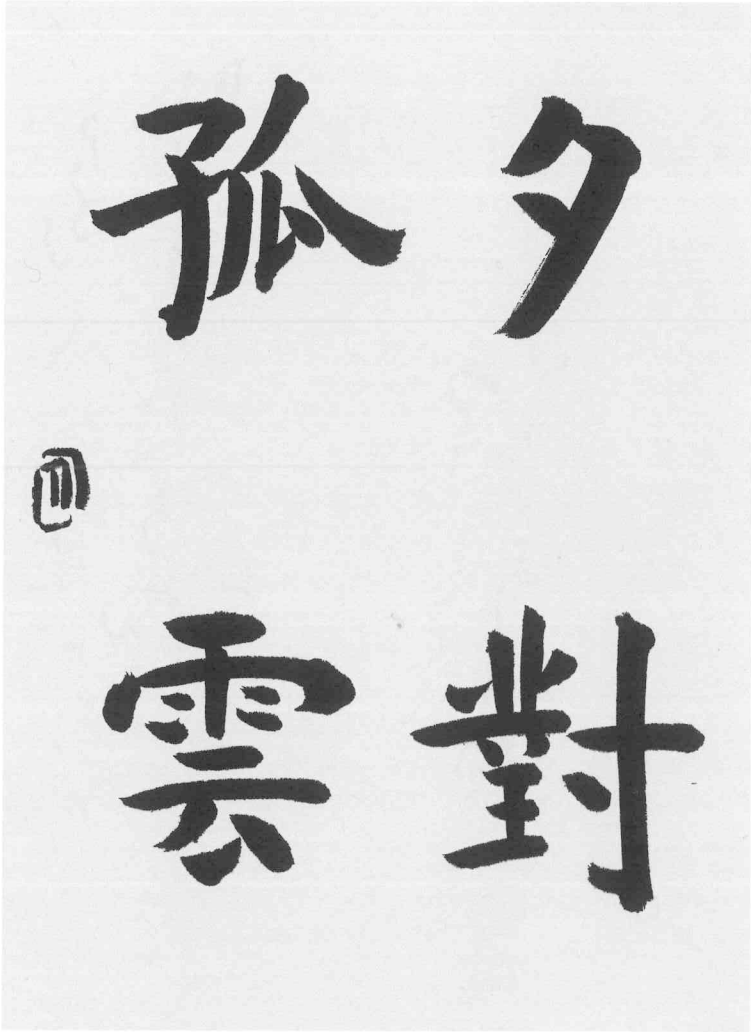 夕對
孤雲